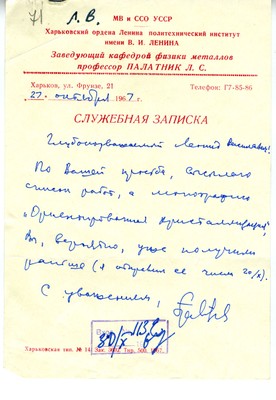 71 Л.В.
МВ и ССО УССР
Харьковский ордена Ленина политехнический институт
имени В. И. ЛЕНИНА
Заведующий кафедрой физики металлов
профессор ПАЛАТНИК Л. С.
Харьков, ул. Фрунзе, 21
Телефон: Г7-85-86
27 октября 1967 г.
СЛУЖЕБНАЯ ЗАПИСКА
Глубокоуважаемый Леонид
По Вашей просьбе, высылаю
список работ, а монографию
„Ориентированная кристаллизация"
Вы, вероятно, уже получили
раньше (я отправил ее числа 20/X).
С уважением,
30/X
Харьковская тип. № 14. Зак. Тир. 500. 1967.